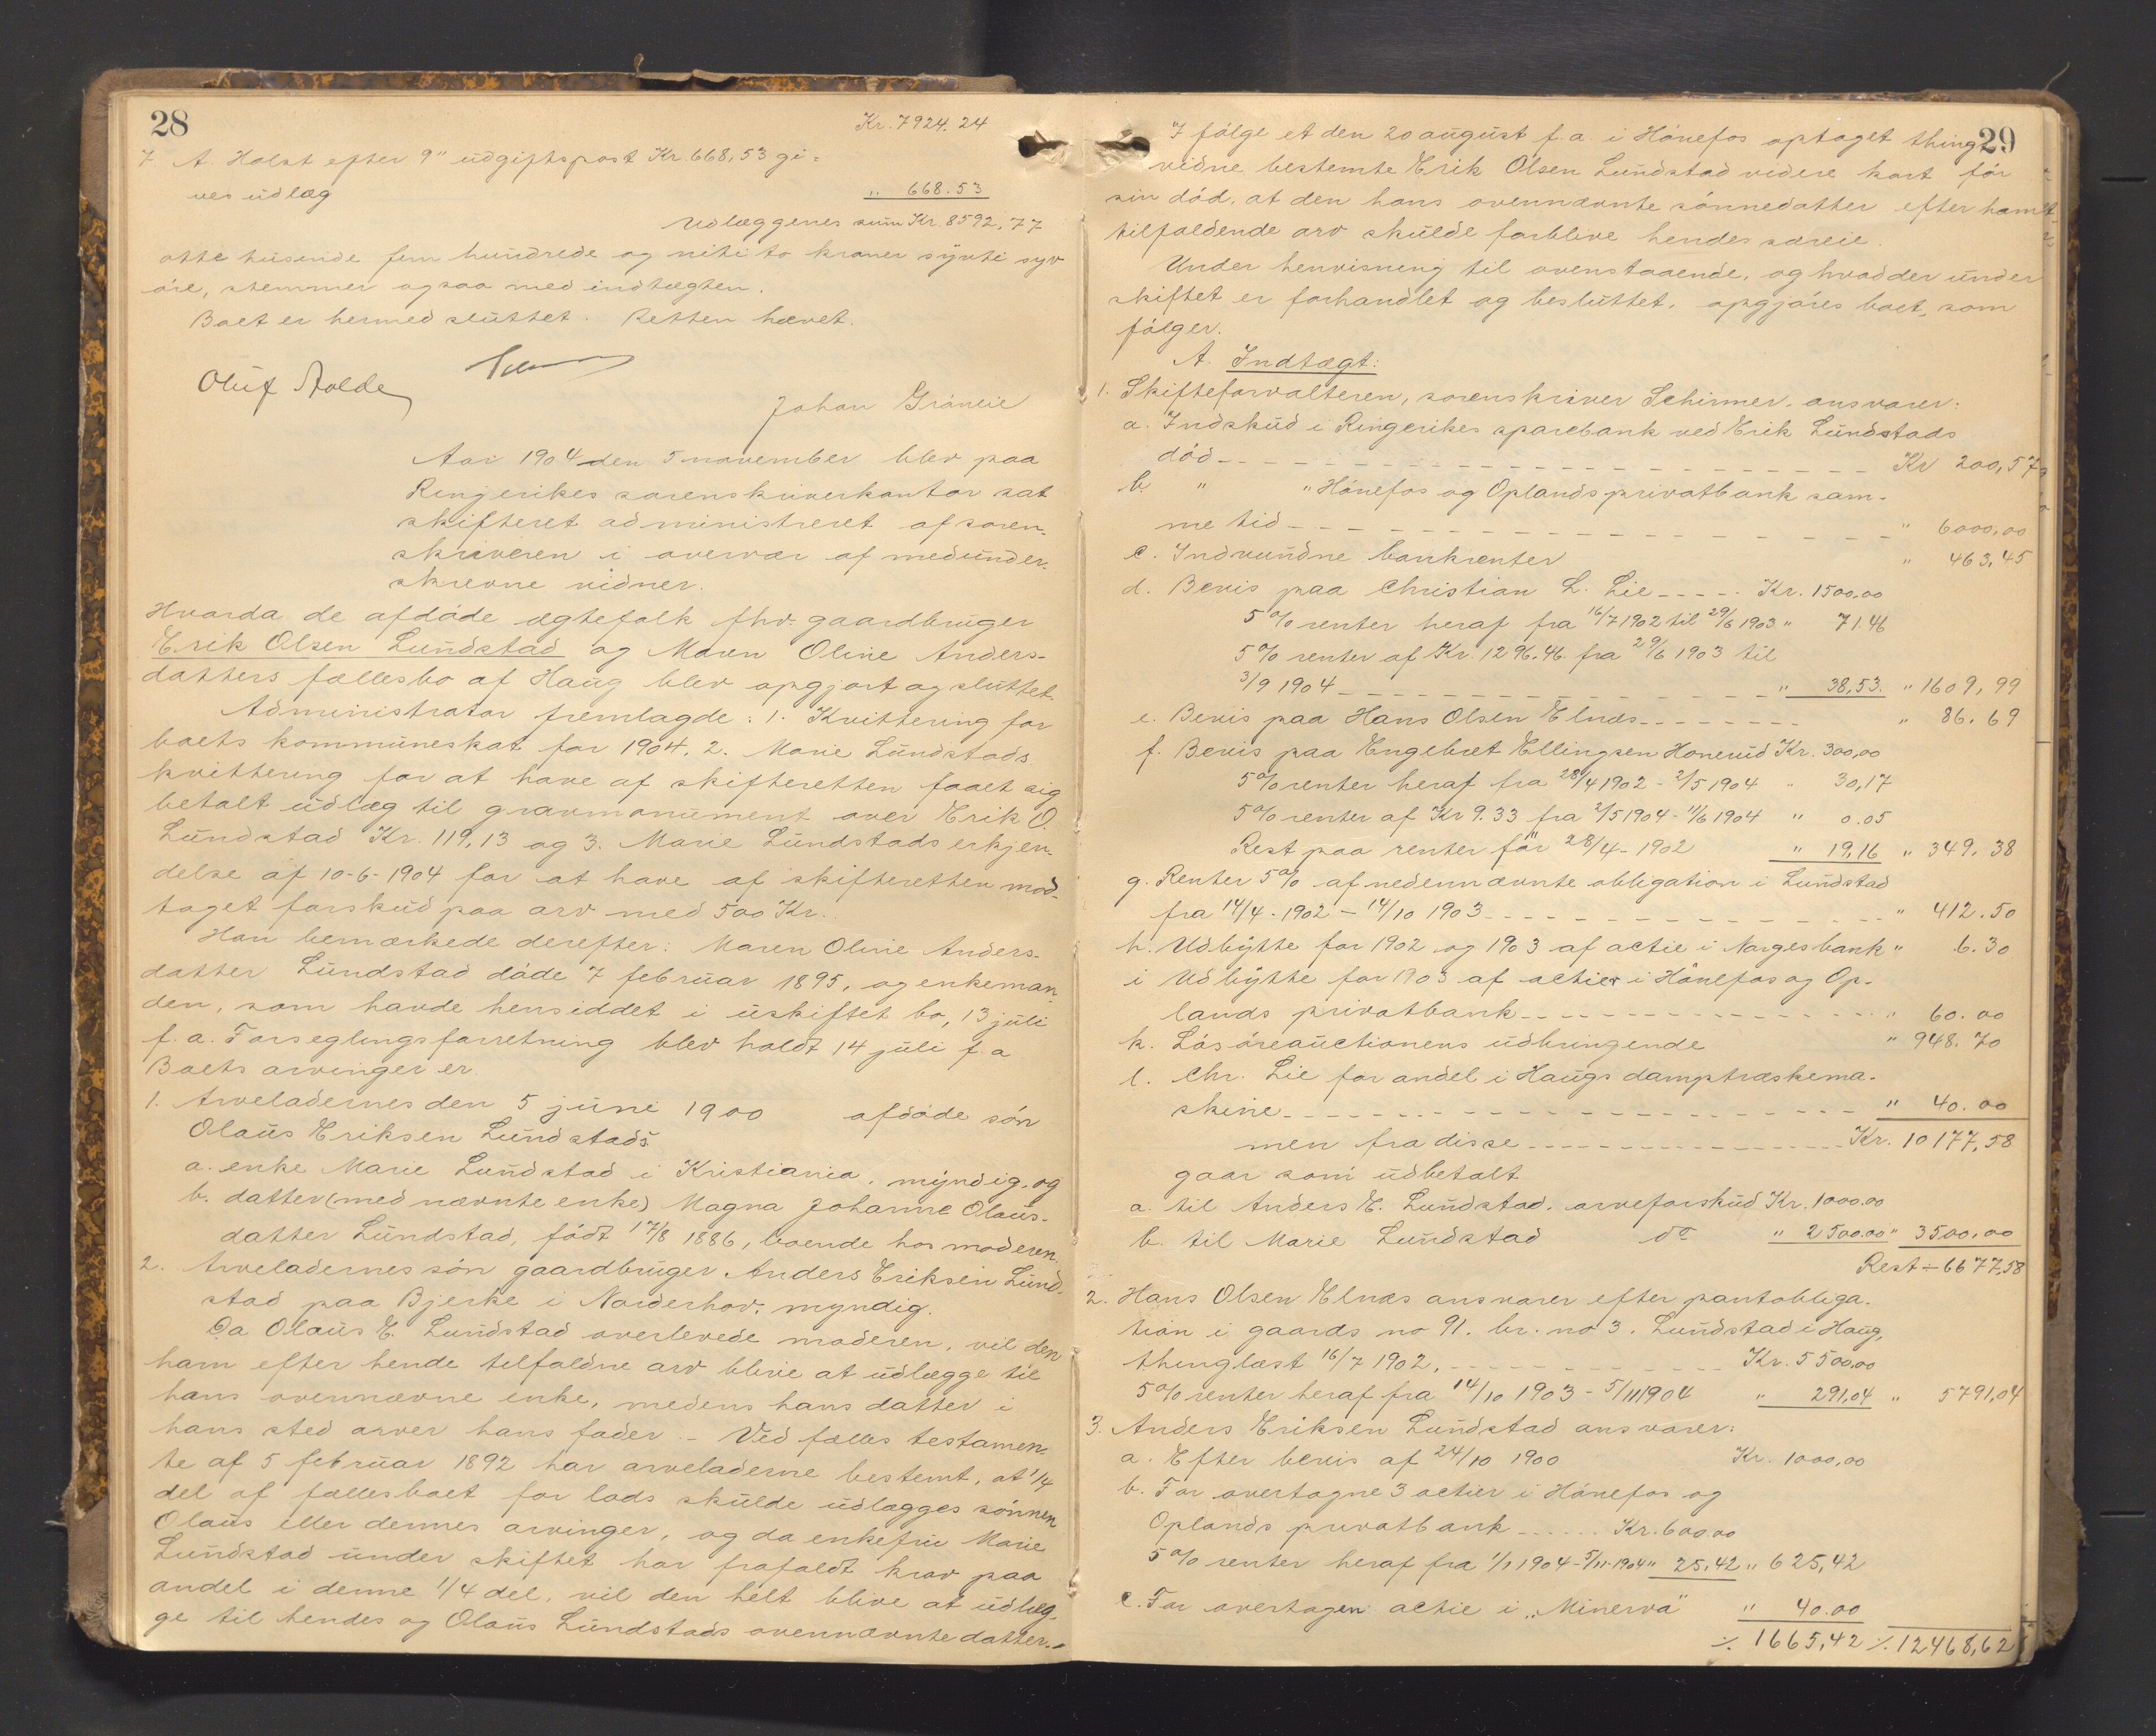 28
Kr. 7924.24
7. A. Holst efter 9" udgiftspost Kr. 668,53 gi=
ves udlæg " 668.53
Udlæggenes sum Kr. 8592.77
otte tusende fem hundrede og nitito kroner sytti syv
öre, stemmer ogsaa med indtægten.
Boet er hermed sluttet. Retten hævet.
Oluf Aolde
Johan Gröneie
Aar 1904 den 5 november blev paa
Ringerikes sorenskriverkontor sat
skifteret administreret af soren-
skriveren i overvær af medunder-
skrevne vidner.
Hvorda de afdöde ægtefolk fhv. gaardbruger
Erik Olsen Lundstad og Maren Oline Anders-
datters fællesbo af Haug blev opgjort og sluttet.
Administrator fremlagde: 1. Kvittering for
boets kommuneskat for 1904, 2. Marie Lundstads
kvittering for at have af skifteretten faaet sig
betalt udlæg til gravmonument over Erik O.
Lundstad Kr. 119,13 og 3. Marie Lundstads erkjen-
delse af 10-6-1904 for at have af skifteretten mod-
taget forskud paa arv med 500 Kr.
Han bemærkede derefter: Maren Oline Anders-
datter Lundstad döde 7 februar 1895, og enkeman-
den, som havde hensiddet i uskiftet bo, 13 juli
f.a. Forseglingsforretning blev holdt 14 juli f.a
Boets arvinger er
1. Arveladernes den 5 juni 1900 afdöde sön
Olaus Eriksen Lundstads
a. enke Marie Lundstad i Kristiania, myndig, og
b. datter (med nævnte enke) Magna Johanne Olaus-
datter Lundstad, födt 17/8 1886, boende hos moderen.
2. Arveladernes sön gaardbruger Anders Eriksen Lund-
stad paa Bjerke i Norderhov, myndig.
Da Olaus E. Lundstad overlevede moderen, vil den
ham efter hende tilfaldne arv blive at udlægge til
hans ovennævne enke, medens hans datter i
hans sted arver hans fader. – Ved fælles testamen-
te af 5 februar 1892 har arveladerne bestemt, at 1/4
del af fællesboet for lods skulde udlægges sönnen
Olaus eller dennes arvinger, og da enkefru Marie
Lundstad under skiftet har frafaldt krav paa
andel i denne 1/4 del, vil den helt blive at udlæg-
ge til hendes og Olaus Lundstads ovennævnte datter.
29
I fölge et den 20 august f.a. i Hönefos optaget things-
vidne bestemte Erik Olsen Lundstad videre kort för
sin död, at den hans ovennævnte sönnedatter efter ham
tilfaldende arv skulde forblive hendes særeie.
Under henvisning til ovenstaaende, og hvad der under
skiftet er forhandlet og besluttet, opgjöres boet, som
fölger.
A. Indtægt:
1. Skifteforvalteren, sorenskriver Schirmer, ansvarer:
a. Indskud i Ringerikes sparebank ved Erik Lundstads
död Kr 200,57
b. " " Hönefos og Oplands privatbank sam-
me tid " 6000,00
c. Indvundne bankrenter " 463,45
d. Bevis paa Christian L. Lie Kr. 1500,00
5% renter heraf fra 16/7 1902 til 29/6 1903 " 71.46
5% renter af Kr. 1296.46. fra 29/6 1903 til
3/9 1904 " 38,53. " 1609,99
e. Bevis paa Hans Olsen Elnæs " 86.69
f. Bevis paa Engebret Ellingsen Honerud Kr. 300,00
5% renter heraf fra 28/4 1902 - 2/5 1904 " 30,17
5% renter af Kr 9.33 fra 2/5 1904 - 11/6 1904 " 0.05
Rest paa renter för 28/4 - 1902 " 19,16 " 349,38
g. Renter 5% af nedennævnte obligation i Lundstad
fra 14/4. 1902 – 14/10 1903 " 412.50
h. Udbytte for 1902 og 1903 af actie i Norges bank " 6.30
i Udbytte for 1903 af actier i Hönefos og Op-
lands privatbank " 60.00
k. Lösöreauctionens udbringende " 948.70
l. Chr. Lie for andel i Haugs damptræskema-
skine " 40.00
men fra disse Kr. 10177,58
gaar som udbetalt
a. til Anders E. Lundstad, arveforskud Kr. 1000.00
b. til Marie Lundstad do " 2500.00 " 3500,00
Rest ÷ 6677,58
2. Hans Olsen Elnæs ansvarer efter pantobliga-
tion i gaards no 91. br. no 3. Lundstad i Haug,
thinglæst 16/7 1902, Kr. 5500,00
5% renter heraf fra 14/10 1903 - 5/11 1904 " 291,04 " 5791,04
3. Anders Eriksen Lundstad ansvarer:
a. Efter bevis af 24/10 1900 Kr. 1000,00
b. For overtagne 3 actier i Hönefos og
Oplands privatbank Kr. 600.00
5% renter heraf fra 1/1 1904 - 5/11-1904 " 25,42 " 625,42
c. For overtagen actie i "Minerva" " 40.00
⁒ 1665,42 ⁒ 12468,62